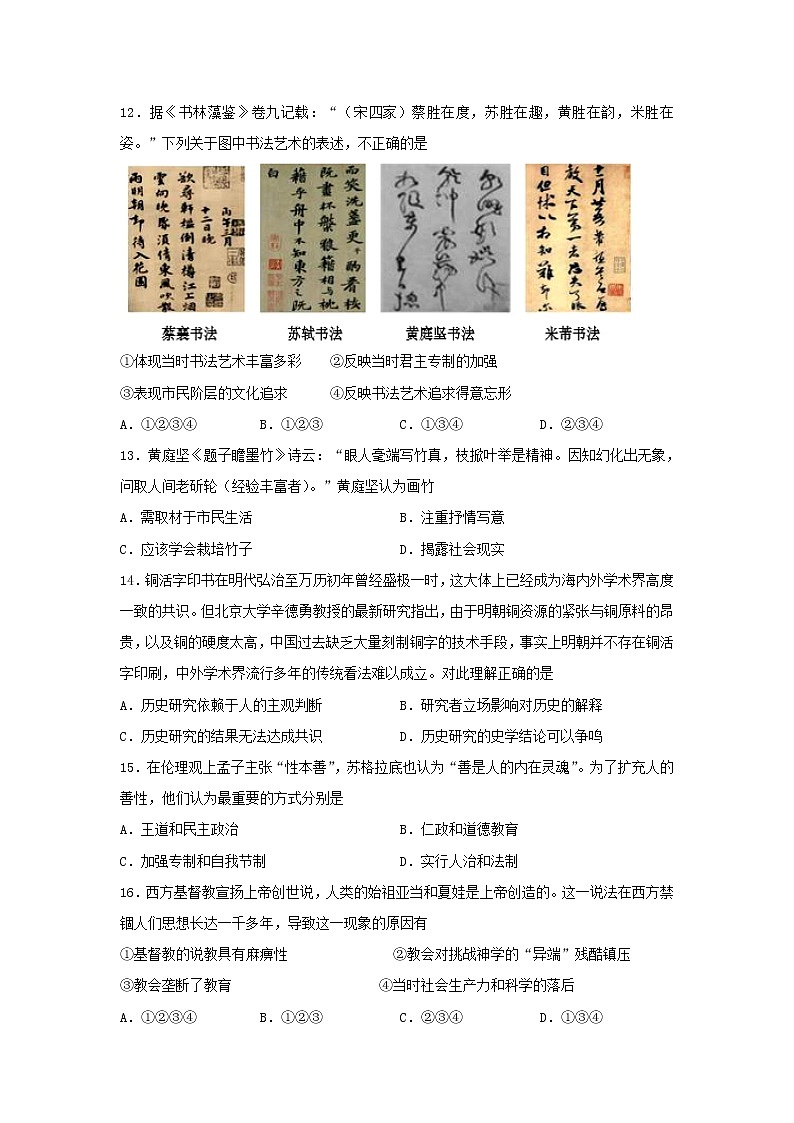 12．据《书林藻鉴》卷九记载：“（宋四家）蔡胜在度，苏胜在趣，黄胜在韵，米胜在
姿。”下列关于图中书法艺术的表述，不正确的是
蔡襄书法 苏轼书法 黄庭坚书法 米芾书法
①体现当时书法艺术丰富多彩 ②反映当时君主专制的加强
③表现市民阶层的文化追求 ④反映书法艺术追求得意忘形
A．①②③④ B．①②③ C．①③④ D．②③④
13．黄庭坚《题子瞻墨竹》诗云：“眼人毫端写竹真，枝掀叶举是精神。因知幻化出无象，
问取人间老斫轮（经验丰富者）。”黄庭坚认为画竹
A．需取材于市民生活 B．注重抒情写意
C．应该学会栽培竹子 D．揭露社会现实
14．铜活字印书在明代弘治至万历初年曾经盛极一时，这大体上已经成为海内外学术界高度
一致的共识。但北京大学辛德勇教授的最新研究指出，由于明朝铜资源的紧张与铜原料的昂
贵，以及铜的硬度太高，中国过去缺乏大量刻制铜字的技术手段，事实上明朝并不存在铜活
字印刷，中外学术界流行多年的传统看法难以成立。对此理解正确的是
A．历史研究依赖于人的主观判断 B．研究者立场影响对历史的解释
C．历史研究的结果无法达成共识 D．历史研究的史学结论可以争鸣
15．在伦理观上孟子主张“性本善”，苏格拉底也认为“善是人的内在灵魂”。为了扩充人的
善性，他们认为最重要的方式分别是
A．王道和民主政治 B．仁政和道德教育
C．加强专制和自我节制 D．实行人治和法制
16．西方基督教宣扬上帝创世说，人类的始祖亚当和夏娃是上帝创造的。这一说法在西方禁
锢人们思想长达一千多年，导致这一现象的原因有
①基督教的说教具有麻痹性 ②教会对挑战神学的“异端”残酷镇压
③教会垄断了教育 ④当时社会生产力和科学的落后
A．①②③④ B．①②③ C．②③④ D．①③④